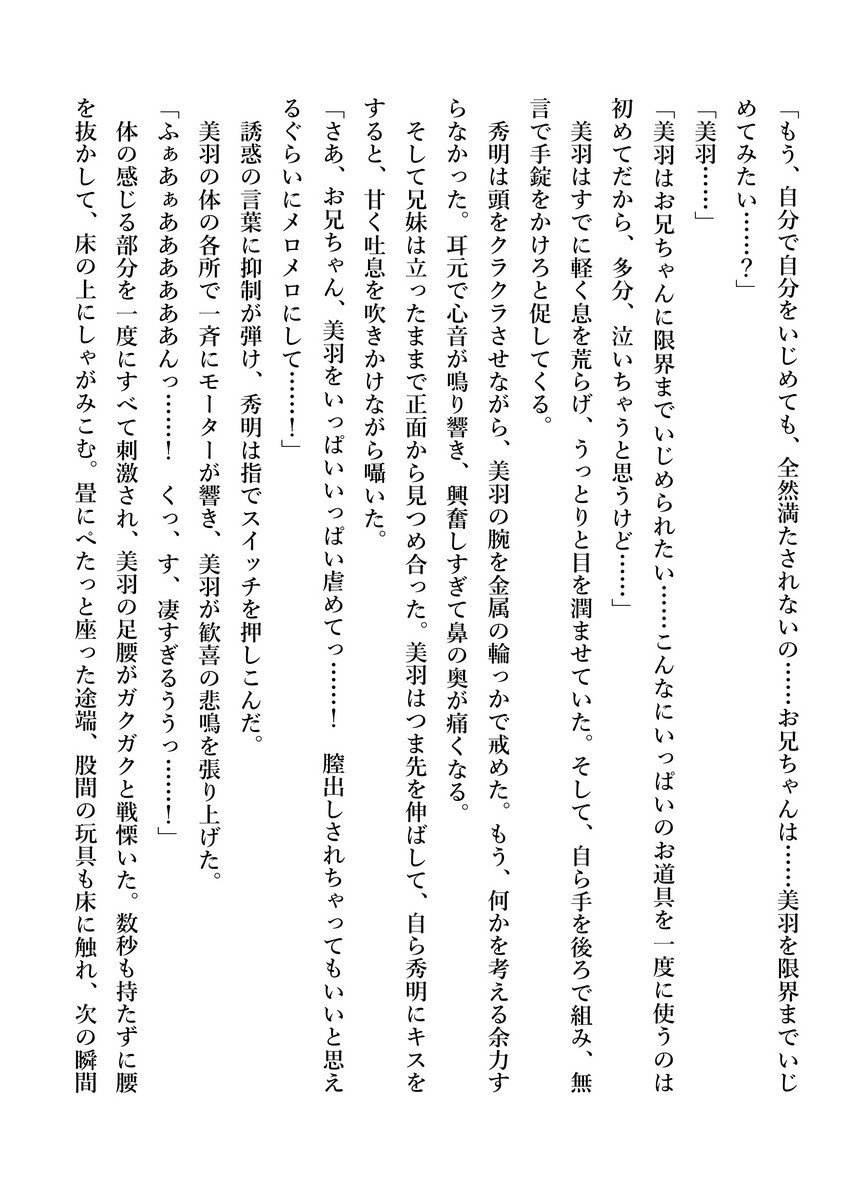 「もう、自分で自分をいじめても、全然満たされないの……お兄ちゃんは……美羽を限界までいじ
めてみたい……？」
「美羽……」
「美羽はお兄ちゃんに限界までいじめられたい……こんなにいっぱいのお道具を一度に使うのは
初めてだから、多分、泣いちゃうと思うけど……」
　美羽はすでに軽く息を荒らげ、うっとりと目を潤ませていた。そして、自ら手を後ろで組み、無
言で手錠をかけろと促してくる。
　秀明は頭をクラクラさせながら、美羽の腕を金属の輪っかで戒めた。もう、何かを考える余力す
らなかった。耳元で心音が鳴り響き、興奮しすぎて鼻の奥が痛くなる。
　そして兄妹は立ったままで正面から見つめ合った。美羽はつま先を伸ばして、自ら秀明にキスを
すると、甘く吐息を吹きかけながら囁いた。
「さあ、お兄ちゃん、美羽をいっぱいいっぱい虐めてっ……！　膣出しされちゃってもいいと思え
るぐらいにメロメロにして……！」
　誘惑の言葉に抑制が弾け、秀明は指でスイッチを押しこんだ。
　美羽の体の各所で一斉にモーターが響き、美羽が歓喜の悲鳴を張り上げた。
「ふぁあぁあああああああんっ……！　くっ、す、凄すぎるううっ……！」
　体の感じる部分を一度にすべて刺激され、美羽の足腰がガクガクと戦慄いた。数秒も持たずに腰
を抜かして、床の上にしゃがみこむ。畳にぺたっと座った途端、股間の玩具も床に触れ、次の瞬間